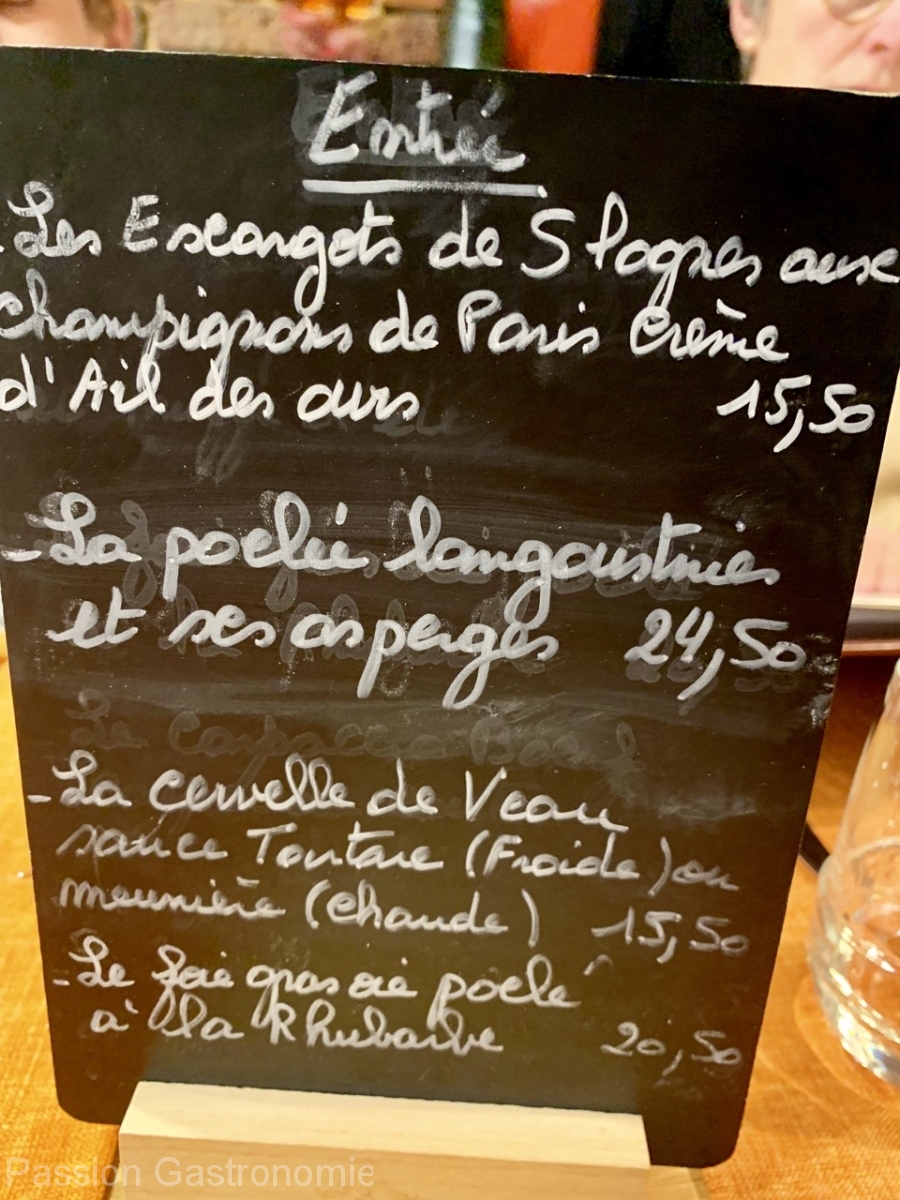 Entrée
- Les Escargots de Slognes aux
Champignons de Paris Crème
d'Ail des ours 15,50
- La poelée langoustines
et ses asperges 24,50
- La cervelle de Veau
sauce Tartare (Froide) ou
meunière (Chaude) 15,50
- Le foie gras oie poelé
à la Rhubarbe 20,50
Passion Gastronomie